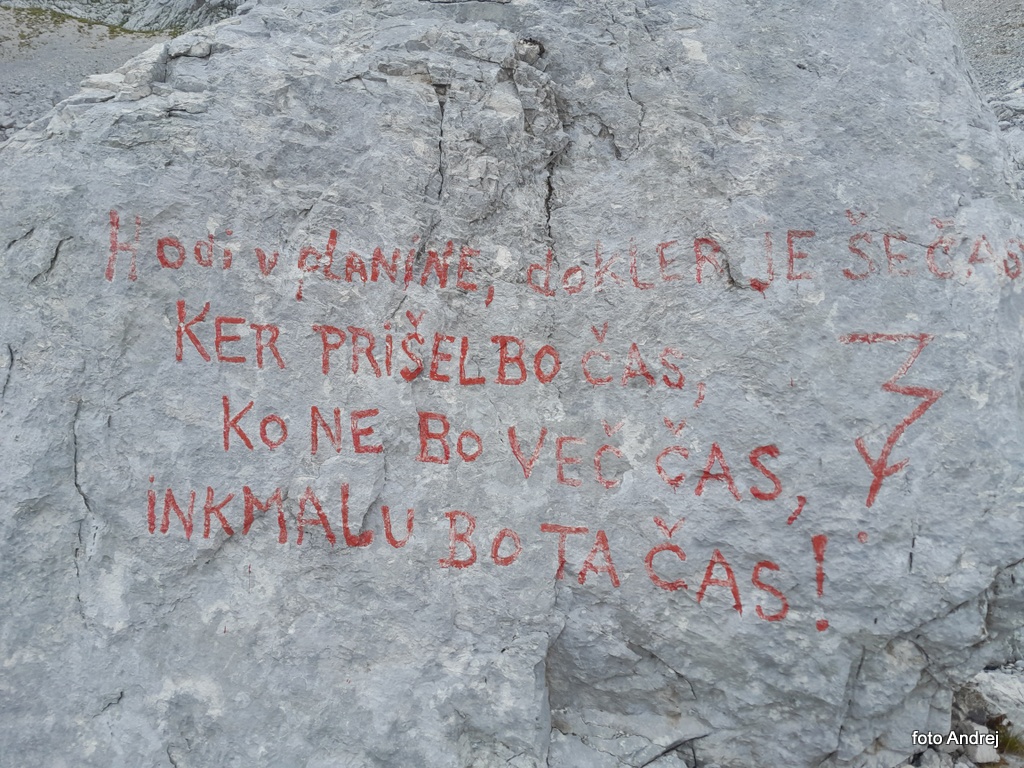 Hodi v plANiNE, dokLER JE ŠE ČAS
KER PRiŠEL BO ČAS,
Ko NE Bo VEČ ČAS,
iNKMALU Bo TA ČAS!
foto Andrej